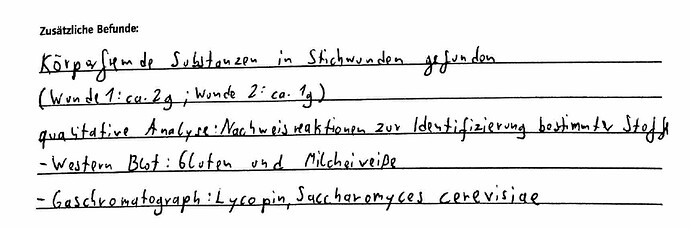 Zusätzliche Befunde:
Körperfremde Substanzen in Stichwunden gefunden
(Wunde 1: ca. 2g ; Wunde 2: ca. 1g)
qualitative Analyse: Nachweisreaktionen zur Identifizierung bestimmter Stoffe
- Western Blot: Gluten und Milcheiweiße
- Gaschromatograph: Lycopin, Saccharomyces cerevisiae